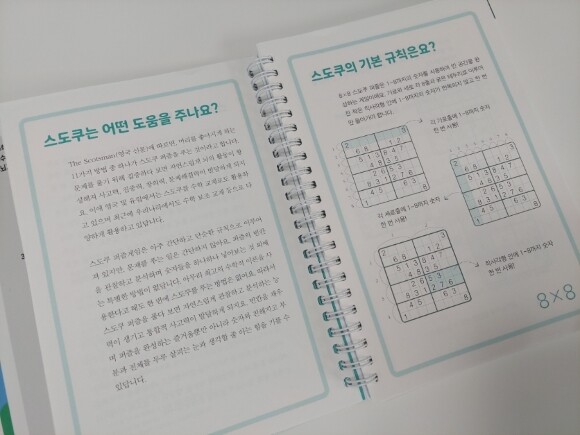 스도쿠는 어떤 도움을 주나요?
The Scotsman(영국 신문)에 따르면, 머리를 좋아지게 하는
11가지 방법 중 하나가 스도쿠 퍼즐을 푸는 것이라고 합니다.
문제를 풀기 위해 집중하다 보면 자연스럽게 뇌의 활동이 왕
성해져 사고력, 집중력, 창의력, 문제해결력이 발달하게 되지
요. 이에 영국 및 유럽에서는 스도쿠를 수학 교재로도 활용하
고 있으며 최근에 우리나라에서도 수학 보조 교재 등으로 다
양하게 활용하고 있답니다.
스도쿠 퍼즐게임은 아주 간단하고 단순한 규칙으로 이루어
져 있지만, 문제를 푸는 일은 간단하지 않아요. 퍼즐의 빈칸
을 관찰하고 분석하며 숫자들을 하나하나 넣어보는 것 외에
는 특별한 방법이 없답니다. 아무리 최고의 수학적 이론을 사
용한다고 해도 한 번에 스도쿠를 푸는 방법은 없어요. 따라서
스도쿠 퍼즐을 풀다 보면 자연스럽게 관찰하고 분석하는 능
력이 생기고 통합적 사고력이 발달하게 되지요. 빈칸을 채우
며 퍼즐을 완성하는 즐거움뿐만 아니라 숫자와 친해지고 부
분과 전체를 두루 살피는 눈과 생각할 줄 아는 힘을 기를 수
있답니다.
스도쿠의 기본 규칙은요?
8×8 스도쿠 퍼즐은 1~8까지의 숫자를 사용하여 빈 공간을 완
성하는 게임이에요. 가로와 세로 각 8줄과 굵은 테두리로 이루어
진 작은 직사각형 안에 1~8까지의 숫자가 반복되지 않고 한 번
만 들어가야 합니다.
각 가로줄에 1~8까지 숫자
한 번 사용!
각 세로줄에 1~8까지 숫자
한 번 사용!
직사각형 안에 1~8까지 숫자
한 번 사용!
8×8